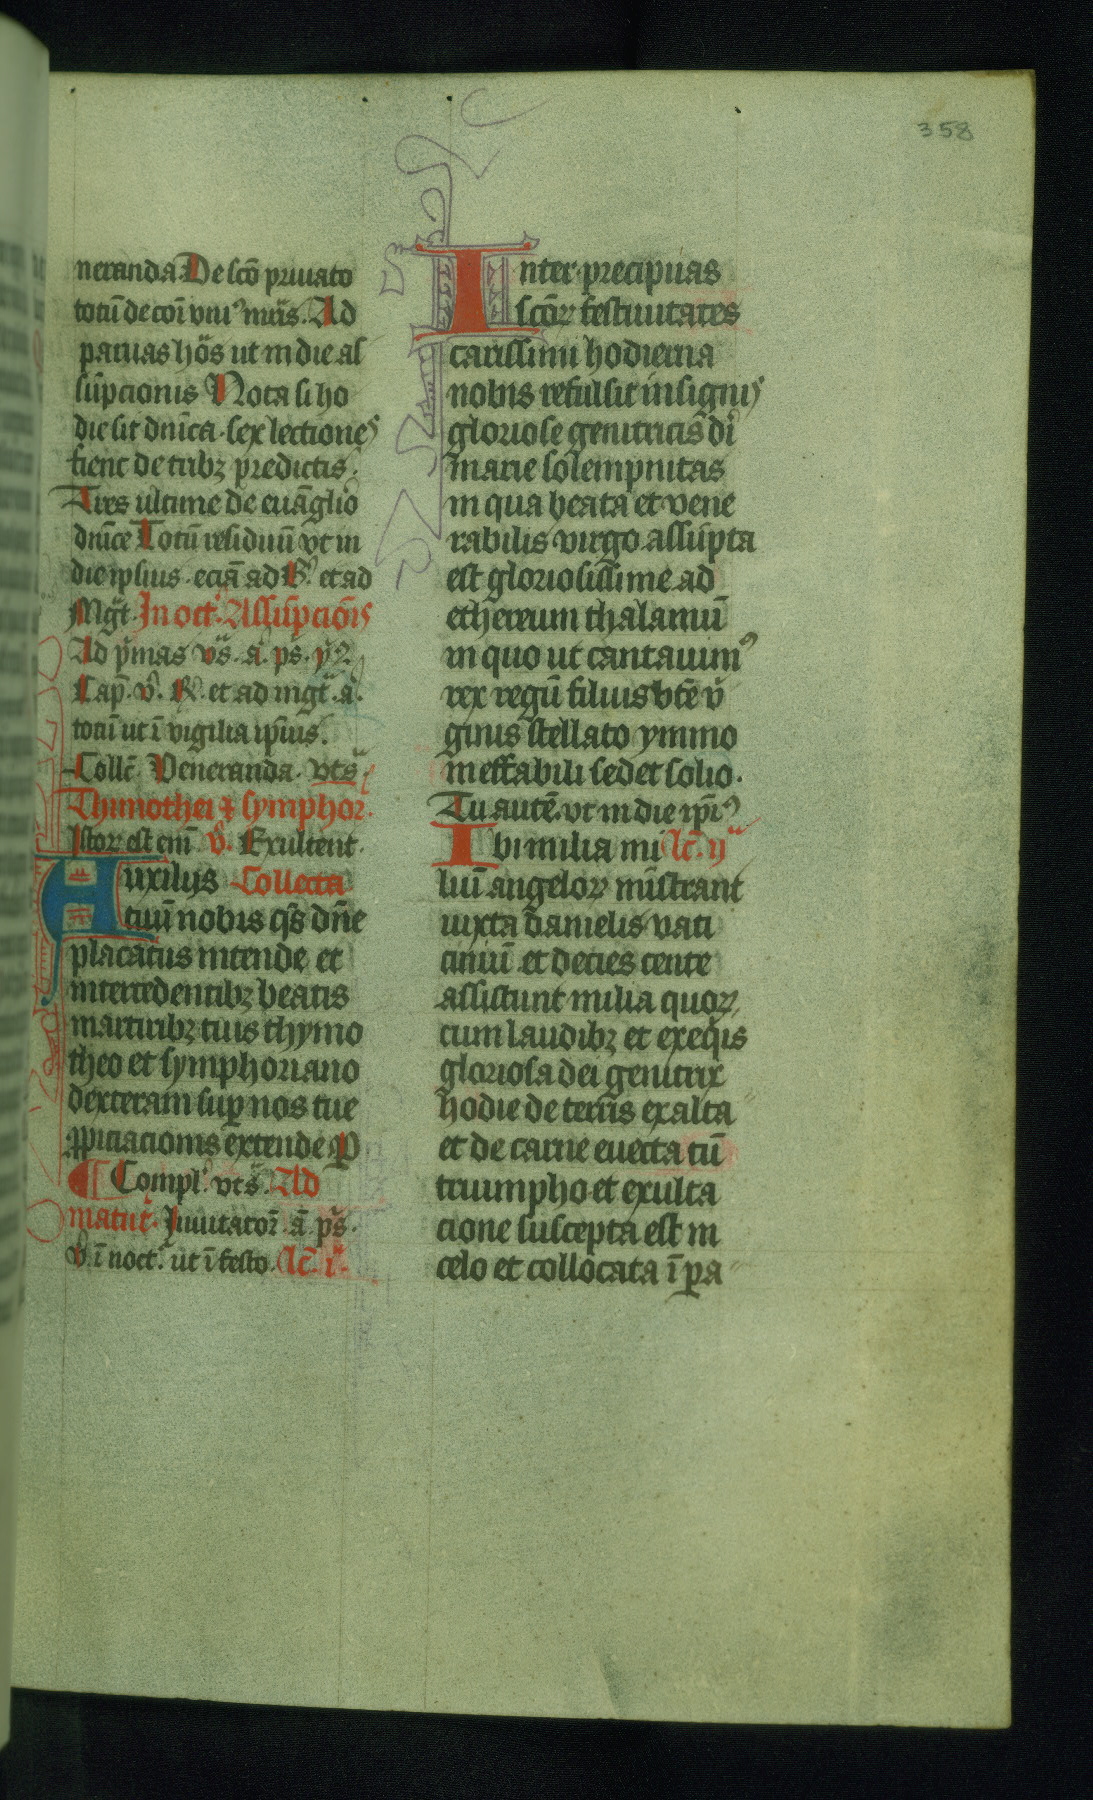 358
neranda De scō priuato
totū de coī vniꝰ mr̄is. Ad
paruas hōs ut in die as
sūpcionis Nota si ho
die sit dn̄ica sex lectiones
fient de tribꝫ predictis.
Tres ultime de euāglio
dn̄ice Totū residuū vt in
die ipsius eciā ad B. et ad
Mgt̄. In oct. Assūpciōis
Ad p̄mas vs̄. a. ps.
Cap. v. R. et ad mgt̄. a.
totū ut ī vigilia ipsius.
Coll̄. Veneranda. vts̄
Thimothei ⁊ symphor.
Istoꝝ est em̄ v. Exultent.
Auxiliꝰ Collecta
tuū nobis qs̄ dn̄e
placatus intende et
intercedentibꝫ beatis
martiribꝫ tuis thymo
theo et symphoriano
dexteram suꝑ nos tue
ꝓpiciacionis extende P
Compl. vts̄. Ad
matut̄. Inuitator̄. a. ps̄.
v. ī noct. ut ī festo. Lc̄. i
Inter precipuas
scōꝝ festiuitates
carissimi hodierna
nobis refulsit insignis
gloriose genitricis di
marie solempnitas
in qua beata et vene
rabilis virgo assūpta
est gloriosissime ad
ethereum thalamū
in quo ut cantauimꝰ
rex regū filius bt̄e v
ginis stellato ymmo
ineffabili sedet solio.
Tu autē. vt in die ipiꝰ
Ibi milia mi Lc̄. ij
liū angeloꝝ mīstrant
iuxta danielis vati
ciniū et decies cente
assistunt milia quoꝝ
cum laudibꝫ et exeqis
gloriosa dei genitrix
hodie de terris exalta
et de carne euecta cū
triumpho et exulta
cione suscepta est in
celo et collocata ī pa